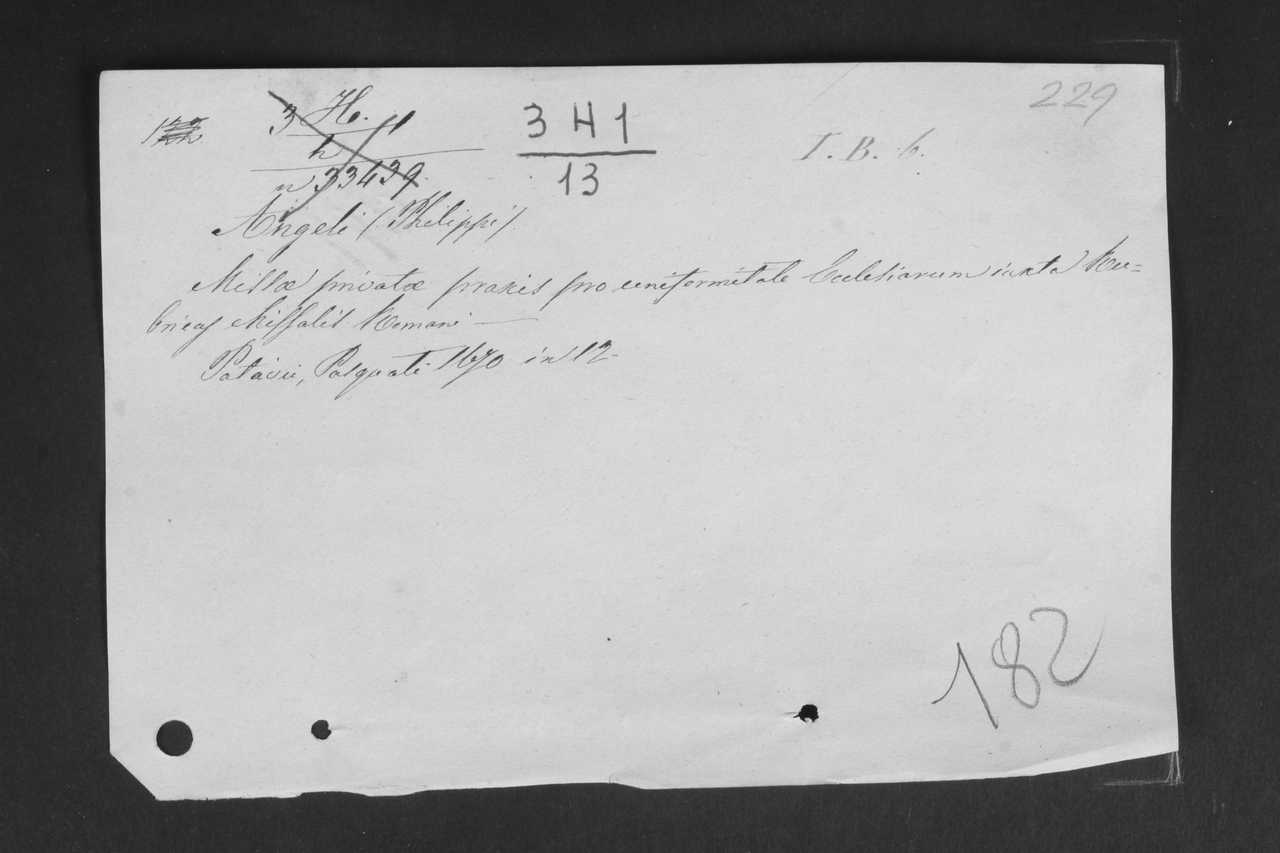 229
3 H. 1
h
n 33439
3 H 1
13
I. B. 6.
Angeli (Philippi)
Missæ privatæ praxis pro uniformitate Ecclesiarum iuxta Ru=
bricas Missalis Romani —
Patavii, Pasquati 1670 in 12.
182